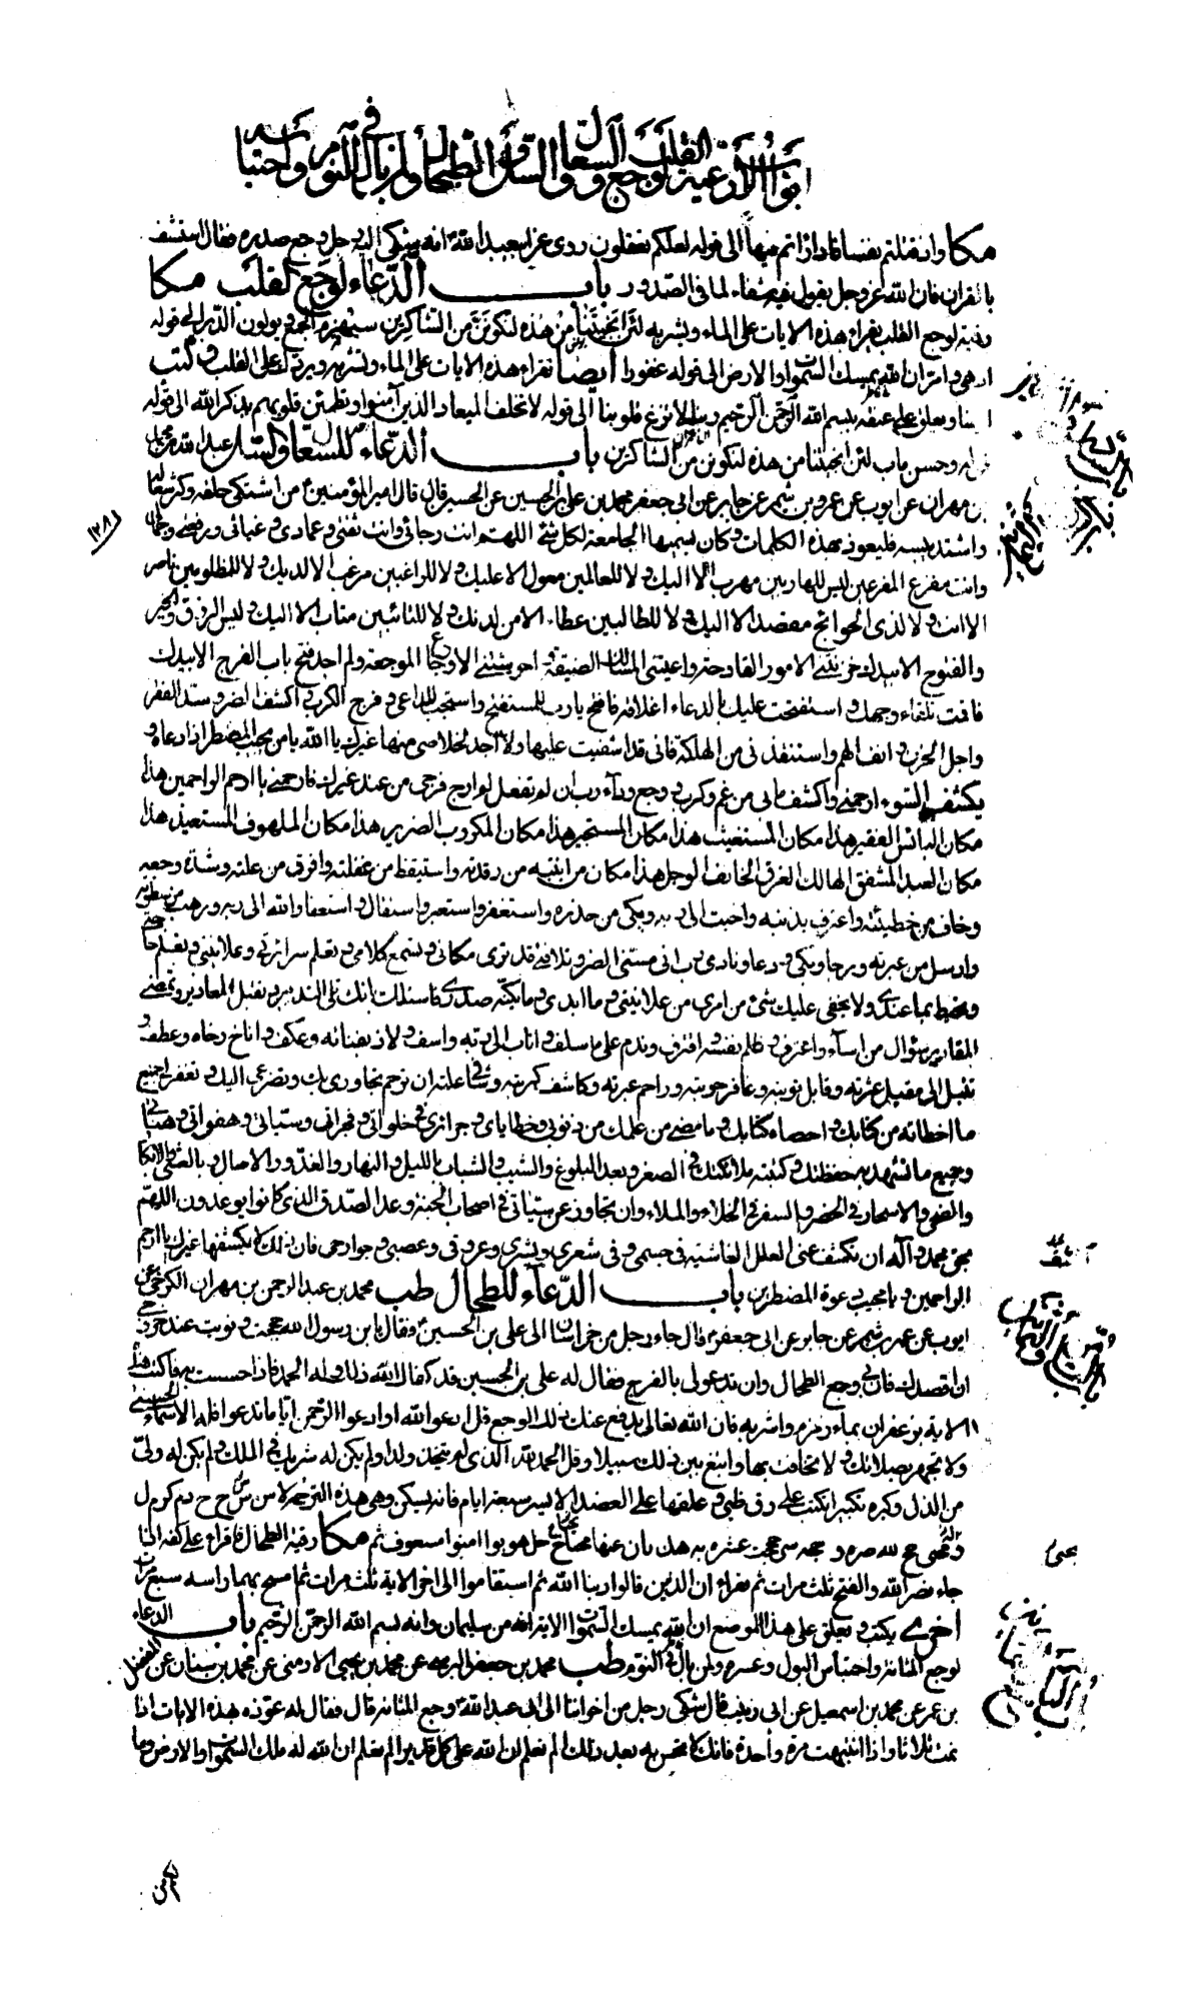 ابواب الأدعية لوجع القلب والسعال والسل والطحال ولمن بال في النوم واحتباسه
مكا واذ قتلتم نفسا فادارأتم فيها الى قوله لعلكم تعقلون روى عن ابيعبد الله ع انه شكى اليه رجل وجع صدره فقال استشف
بالقران فان الله عز وجل يقول فيه شفاء لما فى الصدور باب الدعاء لوجع القلب مكا
رقية لوجع القلب يقراء هذه الايات على الماء ويشربه لئن انجيتنا من هذه لنكونن من الشاكرين سيهزم الجمع ويولون الدبر الى قوله
ادهى وامر ان الله يمسك السموات والارض الى قوله غفورا ايضا تقراء هذه الايات على الماء وتشربه ويرد يدك على القلب وتكتب
ايضا ويعلق على عنقه بسم الله الرحمن الرحيم ربنا لا تزغ قلوبنا الى قوله لا تخلف الميعاد الذين آمنوا وتطمئن قلوبهم بذكر الله الى قوله
وحسن ماب لئن انجيتنا من هذه لنكونن من الشاكرين باب الدعاء للسعال والسل عبد الله بن محمد
بن مهران عن ايوب عن عمرو بن شمر عن جابر عن ابى جعفر محمد بن على بن الحسين عن الحسين قال قال امير المؤمنين ع من اشتكى حلقه وكثر سعاله
واشتد يبسه فليعوذ بهذه الكلمات وكان يسميها الجامعة لكل شئ اللهم انت رجائى وانت ثقتى وعمادى وغياثى ورفعتى وجمالى
وانت مفزع المفزعين ليس للهاربين مهرب الا اليك ولا للعالمين معول الا عليك ولا للراغبين مرغب الا لديك ولا للمظلومين ناصر
الا انت ولا لذى الحوائج مقصد الا اليك ولا للطالبين عطاء الا من لدنك ولا للتائبين متاب الا اليك وليس الرزق والخير
والفتوح الا بيدك حزنتنى الامور الفادحة واعيتنى المسالك الضيقة واحوشتنى الاوجاع الموجعة ولم اجد فتح باب الفرج الا بيدك
فاقمت تلقاء وجهك واستفتحت عليك بالدعاء اغلاقه فافتح يا رب للمستفتح واستجب للداعى وفرج الكرب واكشف الضر وسد الفقر
واجل الحزن وانف الهم واستنقذنى من الهلكة فانى قد اشفيت عليها ولا اجد لخلاصى منها غيرك يا الله يا من يجيب المضطر اذا دعاه و
يكشف السوء ارحمنى واكشف ما بى من غم وكرب ووجع وداء رب ان لم تفعل لم ارج فرجى من عند غيرك فارحمنى يا ارحم الراحمين هذا
مكان البائس الفقير هذا مكان المستغيث هذا مكان المستجير هذا مكان المكروب الضرير هذا مكان الملهوف المستعيذ هذا
مكان العبد المشفق الهالك الغرق الخائف الوجل هذا مكان من انتبه من رقدته واستيقظ من غفلته وافرق من علته وشدة وجعه
وخاف من خطيئته واعترف بذنبه واخبت الى ربه وبكى من حذره واستغفر واستعبر واستقال واستعفا والله الى ربه ورهب من سطوته
وارسل من عبرته ورجا وبكى ودعا ونادى رب انى مسنى الضر وتلافنى قد ترى مكانى وتسمع كلامى وتعلم سرائرى وعلانيتى وتعلم حاجتى
وتحيط بما عندى ولا يخفى عليك شئ من امرى من علانيتى وما ابدى وما يكنه صدرى فاسئلك بانك تلى التدبير وتقبل المعاذير وتمضى
المقادير سؤال من اساء واعترف وظلم نفسه واقترف وندم على ما سلف واناب الى ربه واسف ولاذ بفنائه وعكف واناخ رجاه وعطف و
تبتل الى مقيل عثرته وقابل توبته وغافر حوبته وراحم عبرته وكاشف كربته وشافى علته ان ترحم تجاوزى بك وتضرعى اليك وتغفر لى جميع
ما اخطاته من كتابك واحصاه كتابك وما مضى من علمك من ذنوبى وخطاياى وجرائرى فى خلواتى وفجراتى وسيئاتى وهفواتى وهناتى
وجميع ما تشهد به حفظتك وكتبته ملائكتك فى الصغر وبعد البلوغ والشيب والشباب بالليل والنهار والغدو والاصال وبالعشى والابكار
والضحى والاسحار فى الحضر والسفر فى الخلاء والملاء وان تجاوز عن سيئاتى فى اصحاب الجنة وعد الصدق الذى كانوا يوعدون اللهم
بحق محمد وآله ان تكشف عنى العلل الغاشية فى جسمى وفى شعرى وبشرى وعروقى وعصبى وجوارحى فان ذلك لا يكشفها غيرك يا ارحم
الراحمين ويا مجيب دعوة المضطرين باب الدعاء للطحال طب محمد بن عبد الرحمن بن مهران الكرخى عن
ايوب عن عمر بن شمر عن جابر عن ابى جعفر ع قال جاء رجل من خراسان الى على بن الحسين ع فقال يا بن رسول الله حججت ونويت عند خروجى
ان اقصدك فان بى وجع الطحال وان تدعو لى بالفرج فقال له على بن الحسين قد كفاك الله ذلك وله الحمد فاذا احسست به فاكتب هذه
الاية بزعفران بماء زمزم واشربه فان الله تعالى يدفع عنك ذلك الوجع قل ادعو الله او ادعوا الرحمن ايا ما تدعوا فله الاسماء الحسنى
ولا تجهر بصلاتك ولا تخافت بها وابتغ بين ذلك سبيلا وقل الحمد لله الذى لم يتخذ ولدا ولم يكن له شريك فى الملك ولم يكن له ولى
من الذل وكبره تكبيرا تكتب على رق ظبى وعلقها على العضد الايسر سبعة ايام فانه يسكن وهى هذه الترجمة لاس س ح ح دم كرم ل
مكا رقية الطحال فاقراء على كفه اذا
جاء نصر الله والفتح ثلث مرات ثم يقراء ان الذين قالوا ربنا الله ثم استقاموا الى اخر الاية ثلث مرات ثم امسح بهما راسه سبع مرات
اخرى يكتب ويعلق على هذا الموضع ان الله يمسك السموات الاية انه من سليمان وانه بسم الله الرحمن الرحيم باب الدعاء
لوجع المثانة واحتباس البول وعسره ولمن بال فى النوم طب محمد بن جعفر البرسى عن محمد بن يحيى الارمنى عن محمد بن سنان عن المفضل
بن عمر عن محمد بن اسمعيل عن ابى زينب قال شكى رجل من اخواننا الى ابى عبد الله ع وجع المثانة قال فقال له عوذه بهذه الايات اذا
نمت ثلاثا واذا انتبهت مرة واحدة فانك لا تحس به بعد ذلك الم تعلم ان الله على كل شئ قدير الم تعلم ان الله له ملك السموات والارض وما